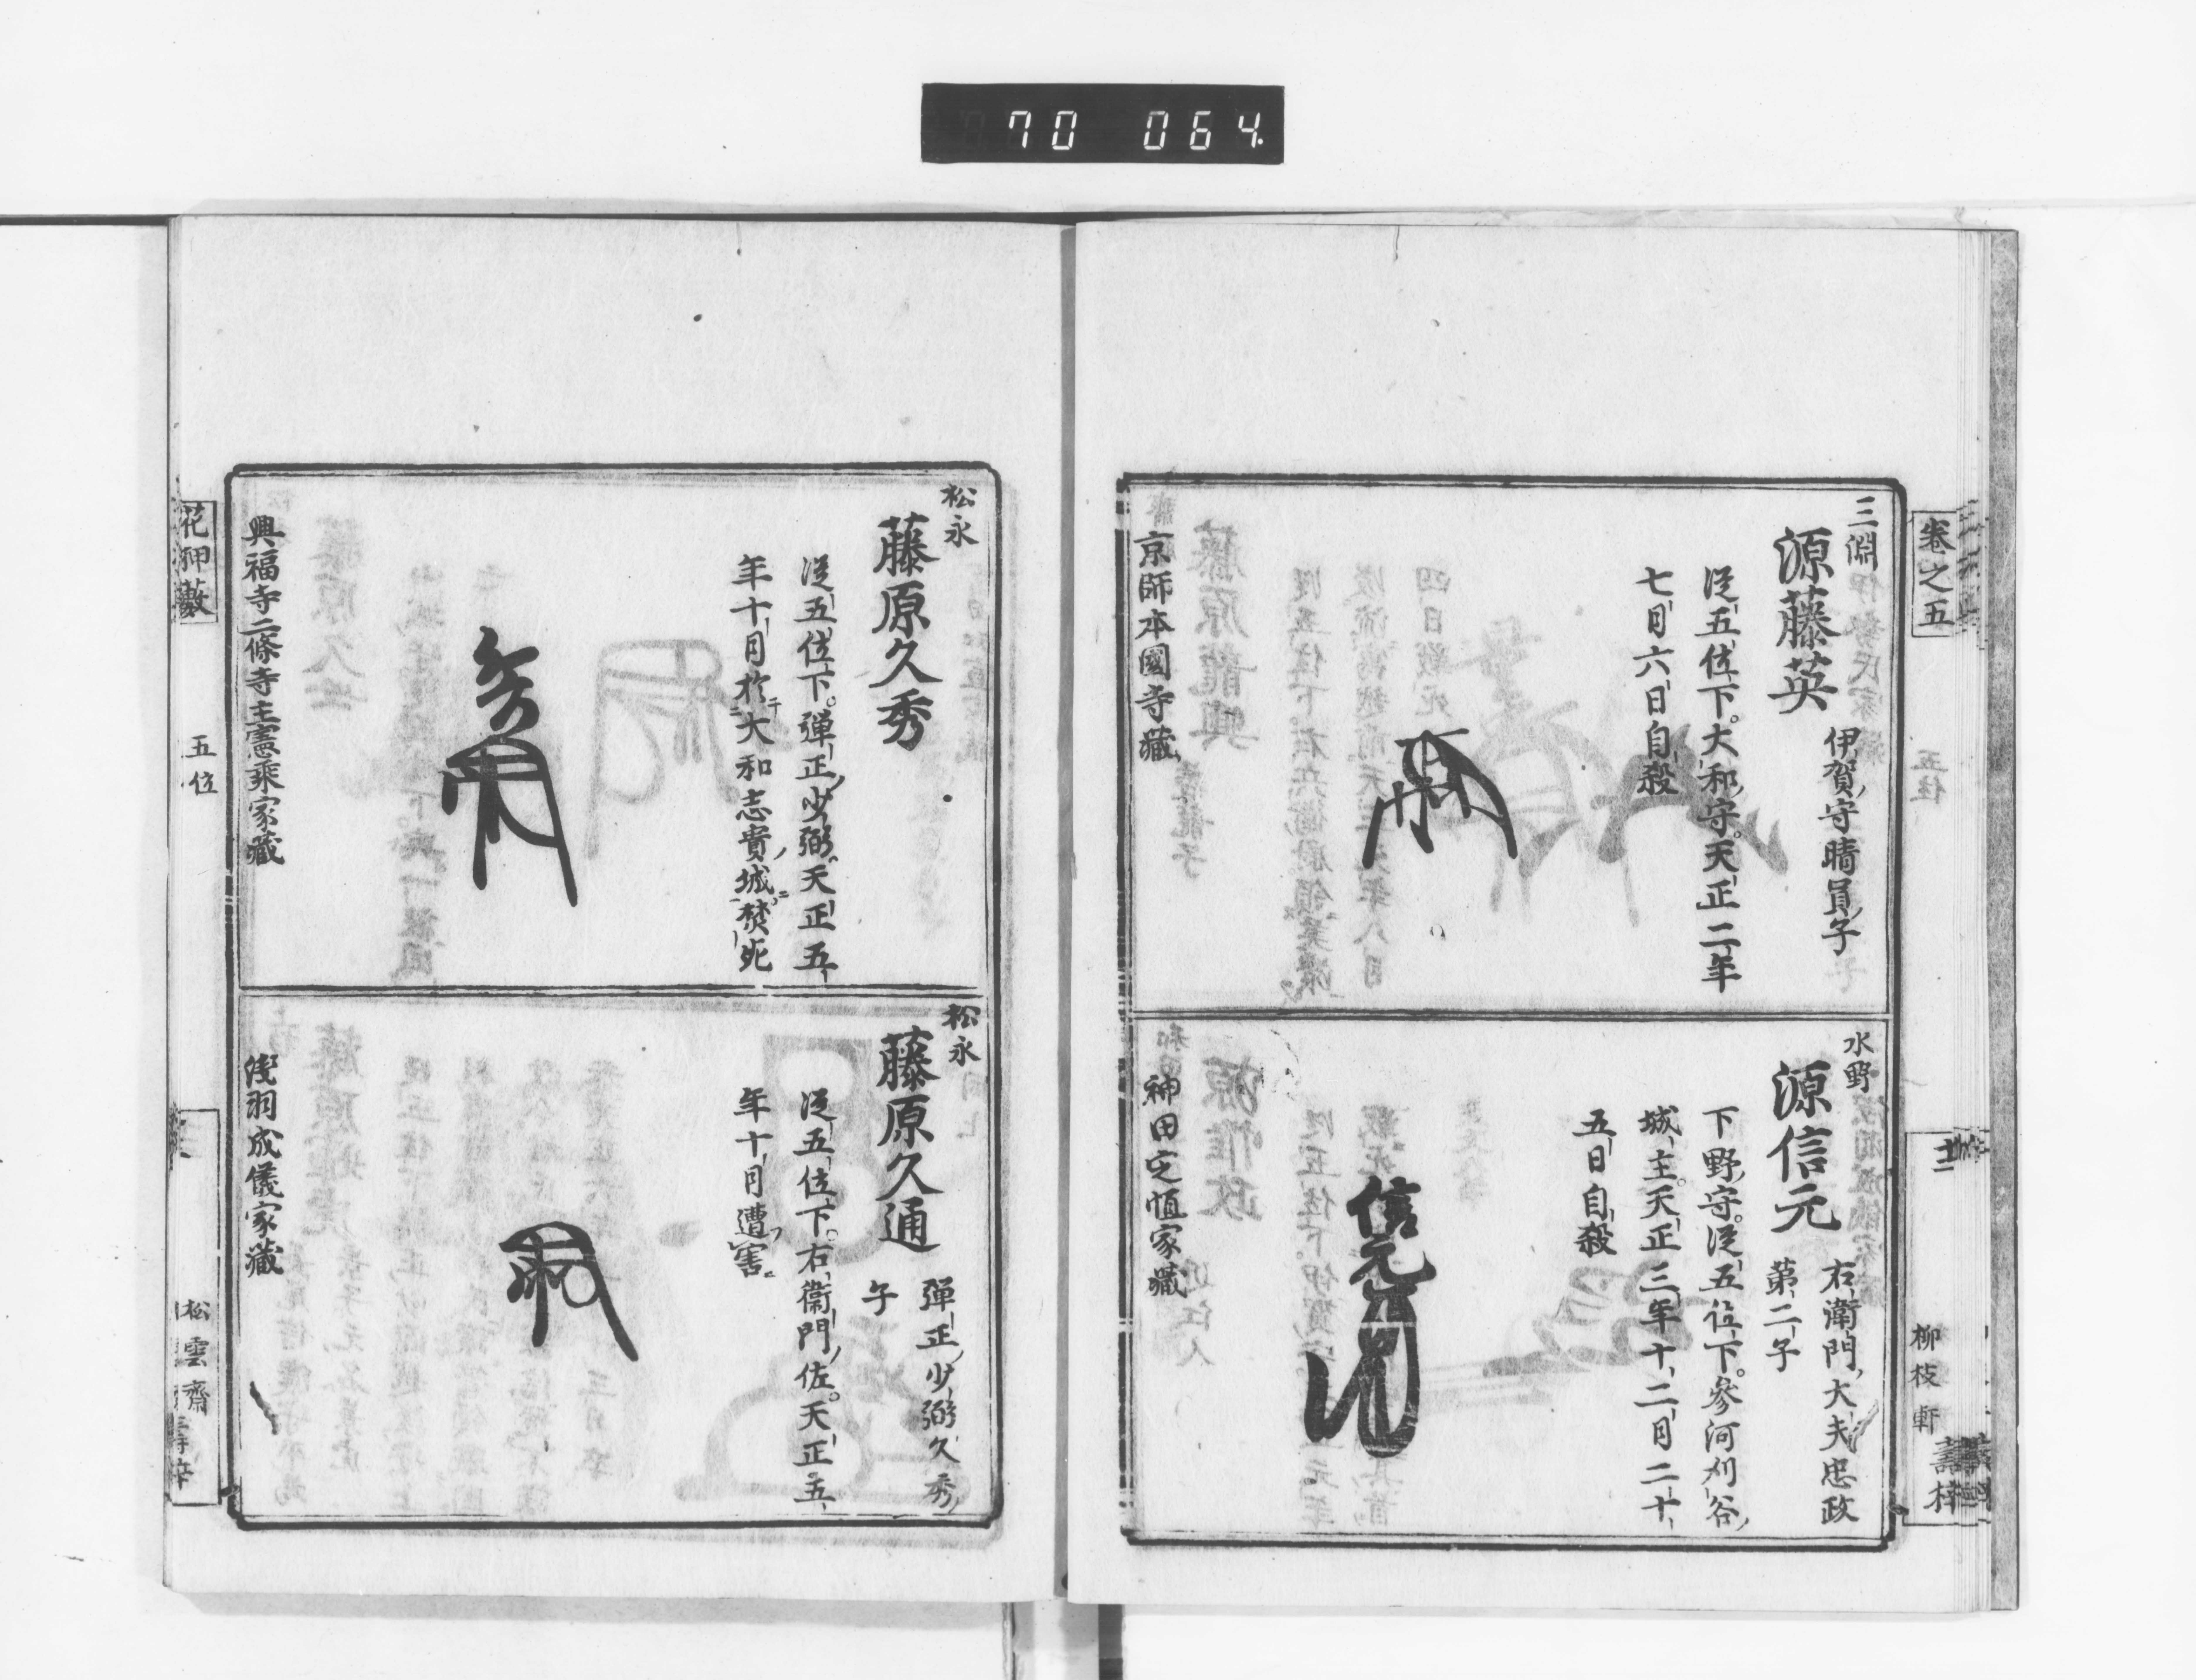 70 064.
卷之五
五位
十二
柳枝軒
壽梓
三淵
源藤英
伊賀守晴員子
従五位下。大和守。天正二年
七月六日自殺
京師本國寺藏
水野
源信元
右衛門大夫忠政
第二子
下野守。従五位下。參河刈谷
城主。天正三年十二月二十
五日自殺
信元
神田定恒家藏
松永
藤原久秀
従五位下。彈正少弼。天正五
年十月於大和志貴城焚死
興福寺二條寺主憲乘家藏
松永
藤原久通
彈正少弼久秀
子
従五位下。右衞門佐。天正五
年十月遭害
淺羽成儀家藏
花押藪
五位
松雲齋